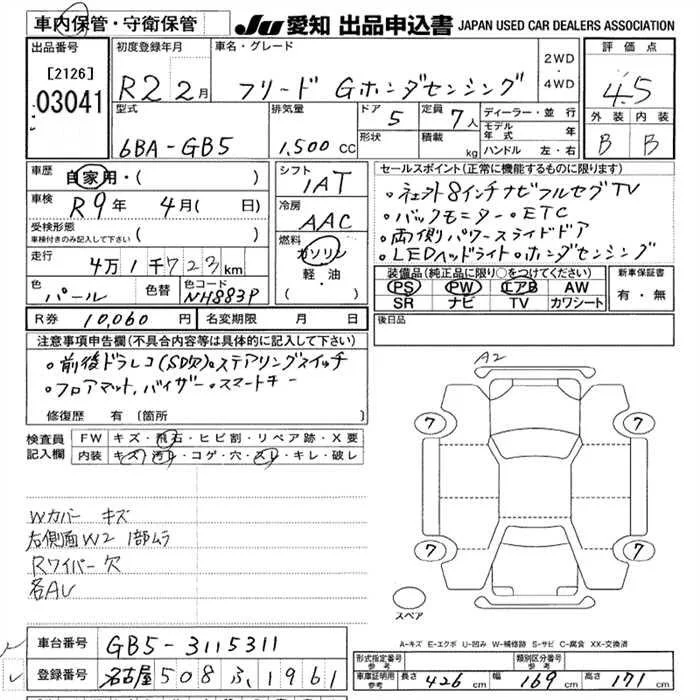 車内保管・守衛保管
JU 愛知 出品申込書 JAPAN USED CAR DEALERS ASSOCIATION
出品番号
[2126]
03041
初度登録年月
R2 2月
車名・グレード
フリード Gホンダセンシング
2WD
・
4WD
評価点
4.5
外装 内装
B B
型式
6BA-GB5
排気量
1,500 cc
ドア
5
形状
定員
7人
積載
kg
ディーラー・並行
モデル年式 年
ハンドル 左・右
車歴
自家用・( )
車検
R9年 4月( 日)
受検形態
車検付きのみ記入して下さい ( )
走行
4万1千723km
色
パール
色替
色コード
NH883P
シフト
IAT
冷房
AAC
燃料
ガソリン
軽・油
( )
セールスポイント(正常に機能するものに限ります)
・ 8インチナビフルセグTV
・バックモニター・ETC
・両側パワースライドドア
・LEDヘッドライト・ホンダセンシング
装備品(純正品に限り○をつけてください)
PS PW エアB AW
SR ナビ TV カワシート
新車保証書
有・無
R券 10,060円
名変期限 月 日
後日品
注意事項申告欄(不具合内容等は具体的に記入して下さい)
・前後ドラレコ(SD欠)・ステアリングスイッチ
・フロアマット、バイザー・スマートキー
修復歴 有 (箇所 )
検査員
記入欄
FW キズ・飛石・ヒビ割・リペア跡・X要
内装 キズ・汚レ・コゲ・穴・スレ・キレ・破レ
Wカバー キズ
右側面W2 1部ムラ
Rワイパー欠
各AU
A2
7
7
7
7
スペア
A-キズ E-エクボ U-凹み W-補修跡 S-サビ C-腐食 XX-交換済
車台番号 GB5-3115311
登録番号 名古屋 508 ふ 1961
形式指定番号
参考
類別区分番号
参考
車庫証明用
参考
長さ 426cm 幅 169cm 高さ 171cm